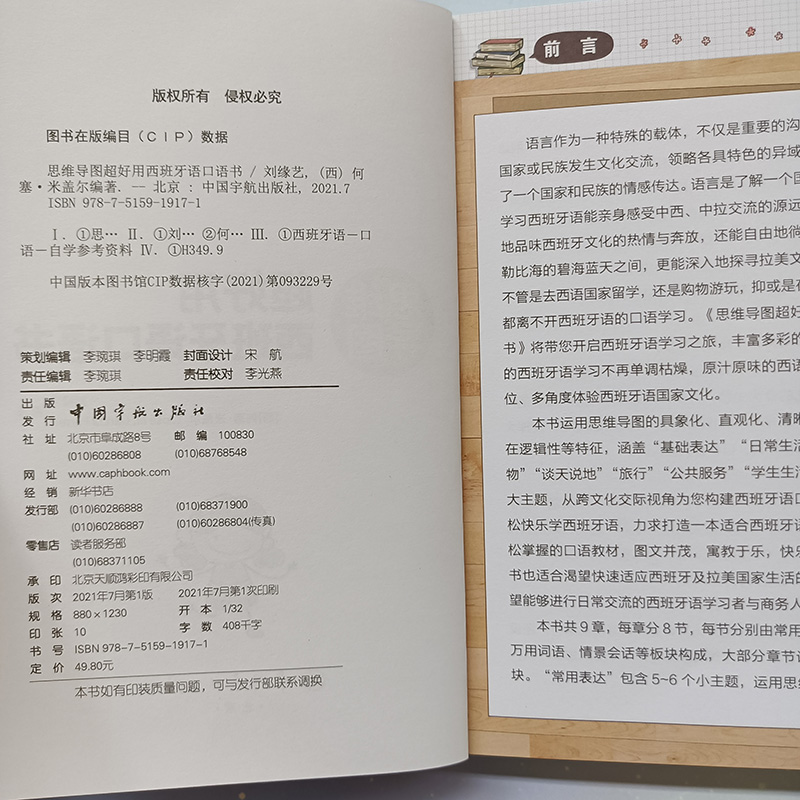 版权所有 侵权必究
图书在版编目(CIP)数据
思维导图超好用西班牙语口语书 / 刘缘艺, (西) 何
塞·米盖尔编著. -- 北京 : 中国宇航出版社, 2021.7
ISBN 978-7-5159-1917-1
Ⅰ. ①思… Ⅱ. ①刘… ②何… Ⅲ. ①西班牙语－口
语－自学参考资料 Ⅳ. ①H349.9
中国版本图书馆CIP数据核字(2021)第093229号
策划编辑 李琬琪 李明霞 封面设计 宋 航
责任编辑 李琬琪 责任校对 李光燕
出 版
发 行 中国宇航出版社
社 址 北京市阜成路8号 邮 编 100830
(010)60286808 (010)68768548
网 址 www.caphbook.com
经 销 新华书店
发行部 (010)60286888 (010)68371900
(010)60286887 (010)60286804(传真)
零售店 读者服务部
(010)68371105
承 印 北京天顺鸿彩印有限公司
版 次 2021年7月第1版 2021年7月第1次印刷
规 格 880×1230 开 本 1/32
印 张 10 字 数 408千字
书 号 ISBN 978-7-5159-1917-1
定 价 49.80元
本书如有印装质量问题,可与发行部联系调换
前 言
语言作为一种特殊的载体,不仅是重要的沟
国家或民族发生文化交流,领略各具特色的异域
了一个国家和民族的情感传达。语言是了解一个国
学习西班牙语能亲身感受中西、中拉交流的源远
地品味西班牙文化的热情与奔放,还能自由地徜
勒比海的碧海蓝天之间,更能深入地探寻拉美文
不管是去西语国家留学,还是购物游玩,抑或是在
都离不开西班牙语的口语学习。《思维导图超好
书》将带您开启西班牙语学习之旅,丰富多彩的
的西班牙语学习不再单调枯燥,原汁原味的西语
位、多角度体验西班牙语国家文化。
本书运用思维导图的具象化、直观化、清晰
在逻辑性等特征,涵盖“基础表达”“日常生活
物”“谈天说地”“旅行”“公共服务”“学生生活
大主题,从跨文化交际视角为您构建西班牙语口
松快乐学西班牙语,力求打造一本适合西班牙语
松掌握的口语教材,图文并茂,寓教于乐,快乐
书也适合渴望快速适应西班牙及拉美国家生活的
望能够进行日常交流的西班牙语学习者与商务人
本书共9章,每章分8节,每节分别由常用
万用词语、情景会话等板块构成,大部分章节设
块。“常用表达”包含5~6个小主题,运用思维